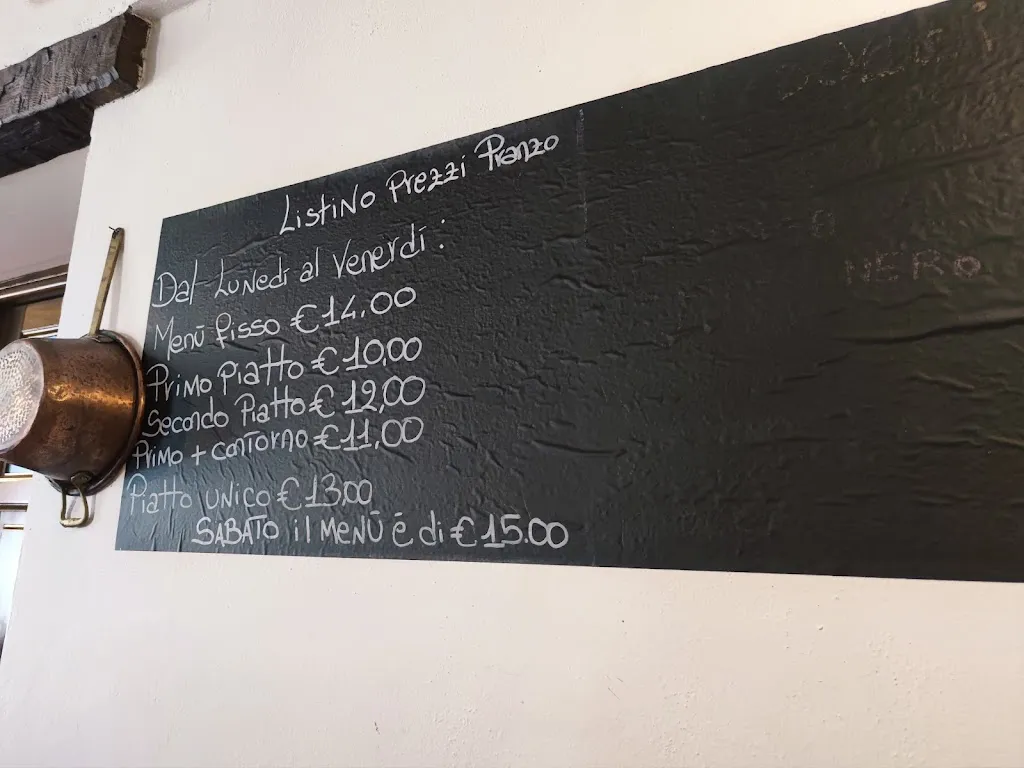 Listino Prezzi Pranzo
Dal Lunedì al Venerdì:
Menū fisso €14.00
Primo Piatto € 10,00
Secondo Piatto € 12,00
Primo + contorno €11,00
Piatto unico € 13.00
SABATO il MENŪ ē di €15.00
NERO